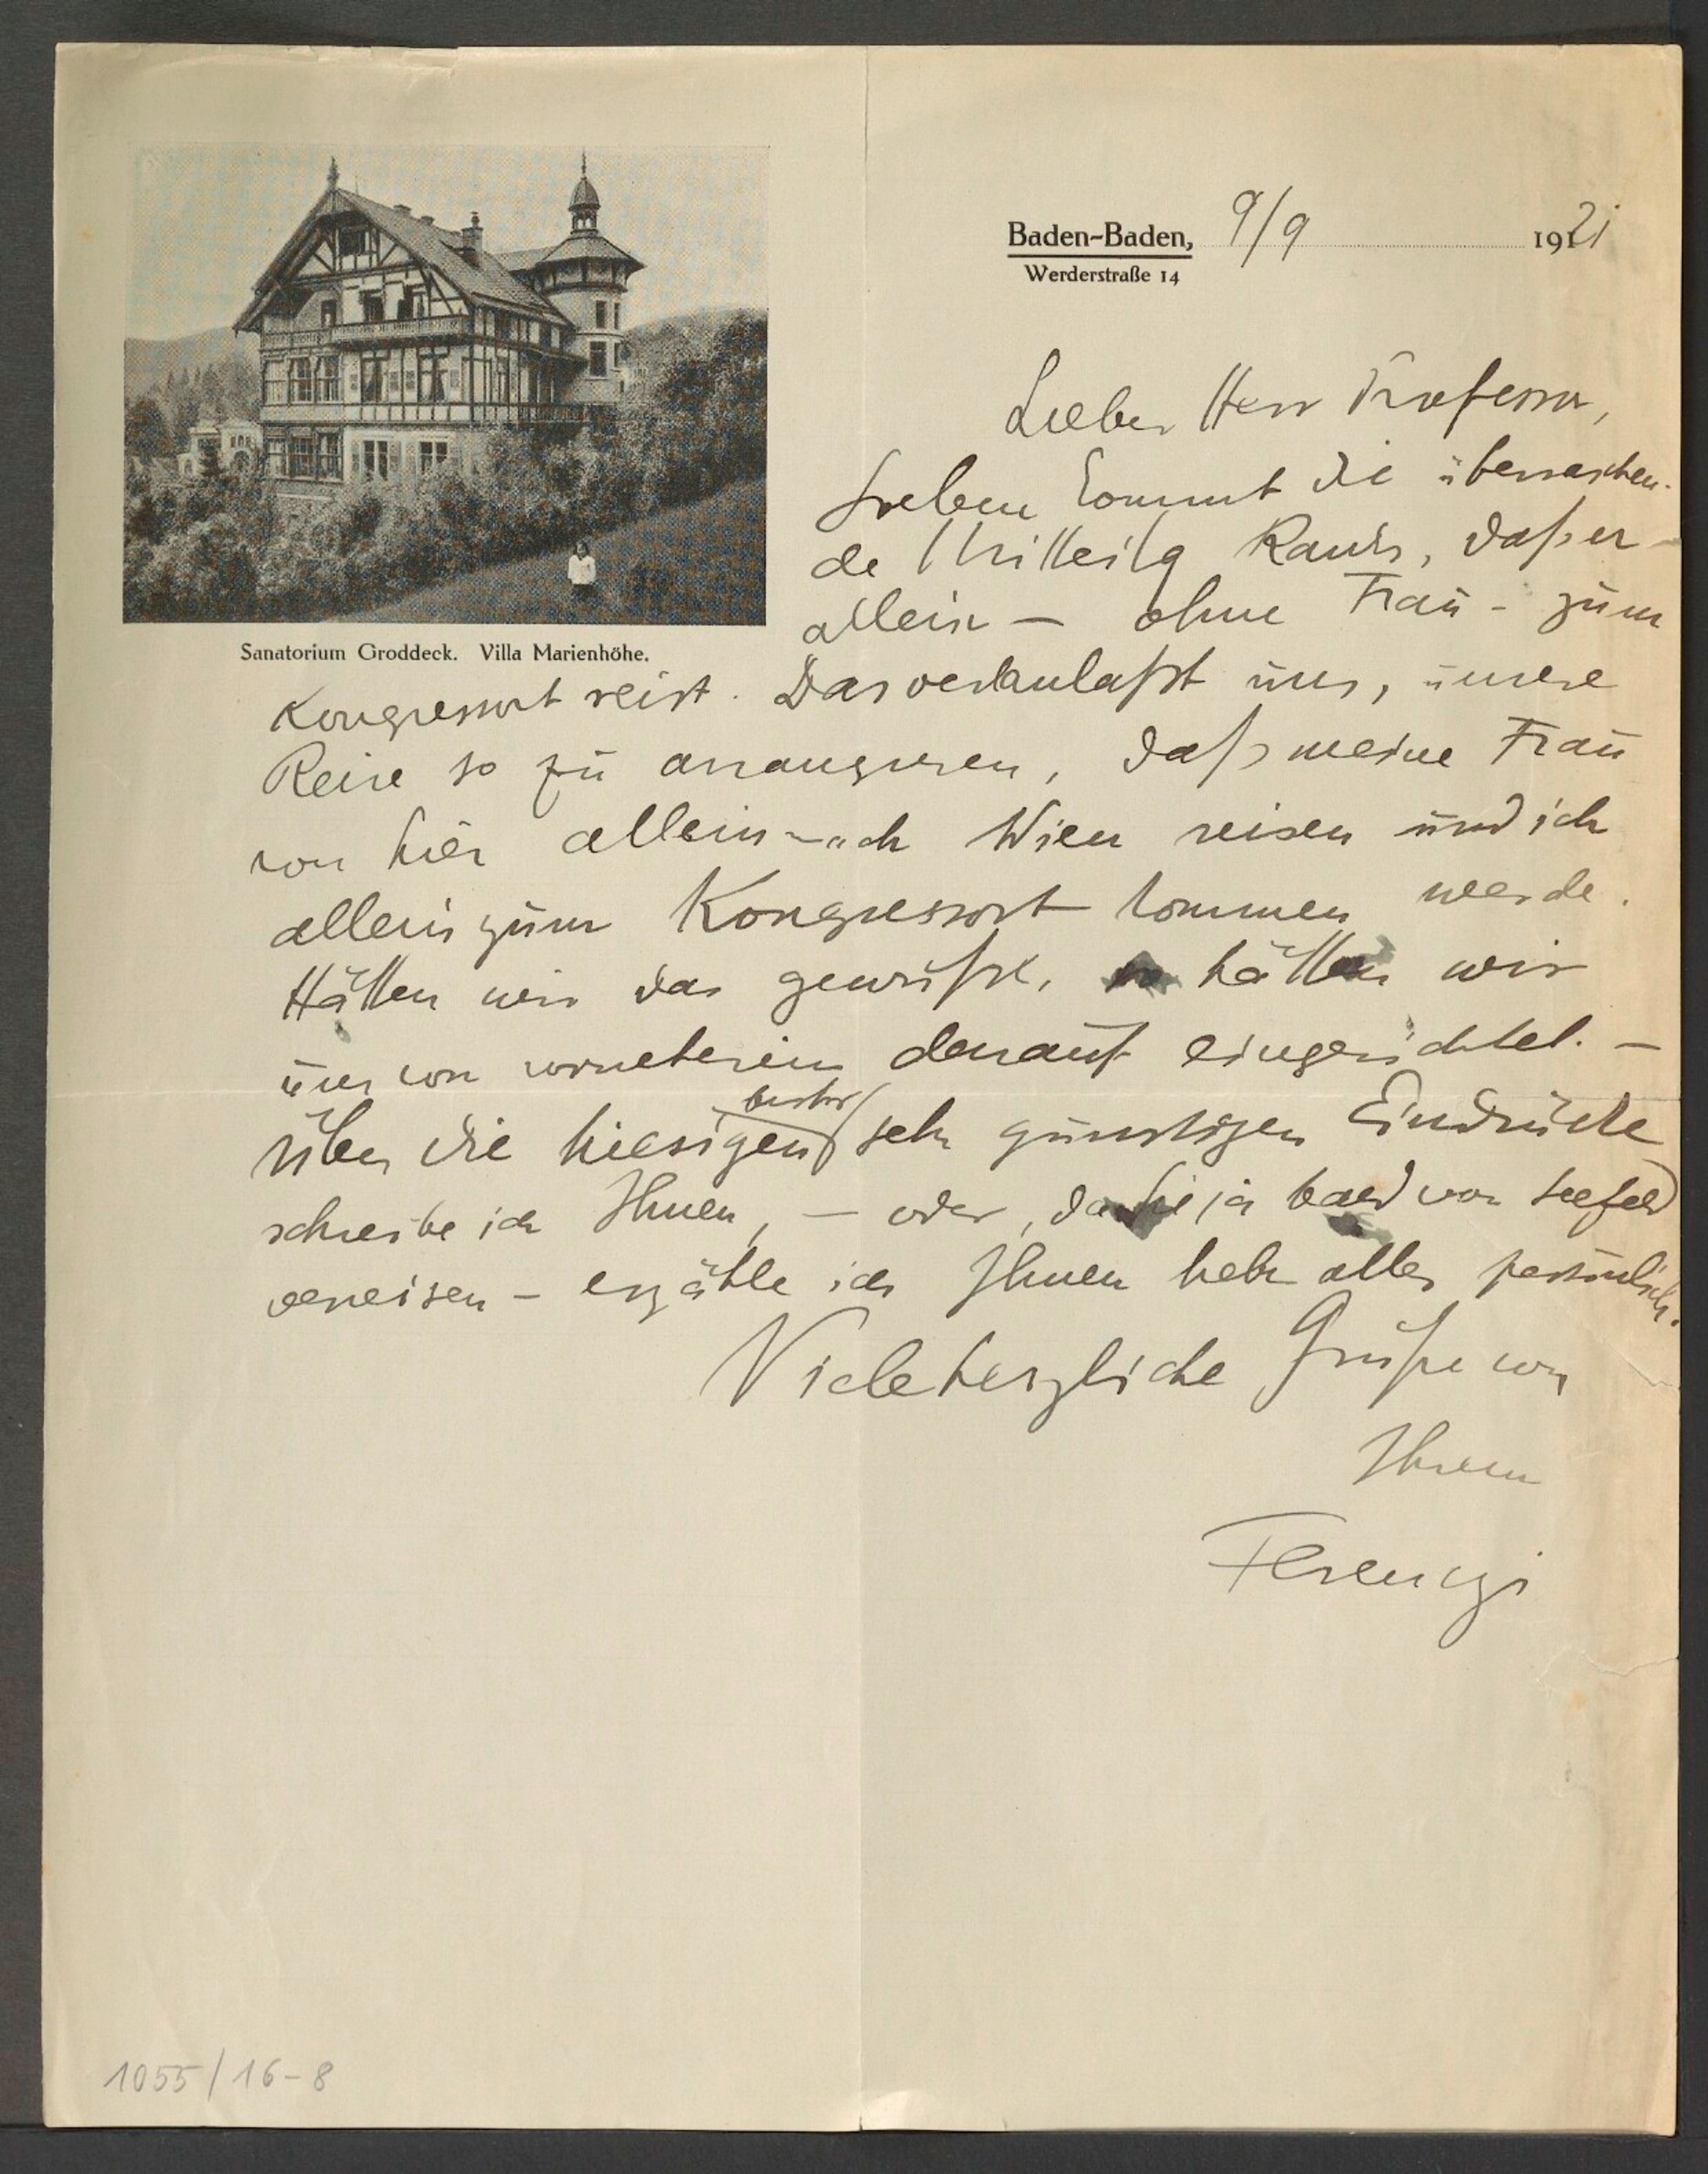 Baden-Baden, 9/9 1921
Werderstraße 14
Sanatorium Groddeck. Villa Marienhöhe.
Lieber Herr Professor,
soeben kommt die überraschen-
de Mitteilg Ranks, daß er
allein – ohne Frau – zum
Kongressort reist. Das veranlaßt uns, unsere
Reise so zu arrangieren, daß meine Frau
von hier allein nach Wien reisen und ich
allein zum Kongressort kommen werde.
Hätten wir das gewußt, so hätten wir
uns von vorneherein darauf eingerichtet. –
Über die hiesigen bisher sehr günstigen Eindrücke
schreibe ich Ihnen, – oder, da Sie ja bald von Seefeld
verreisen – erzähle ich Ihnen lieber alles persönlich.
Viele herzliche Grüße von
Ihrem
Ferenczi
1055/16-8